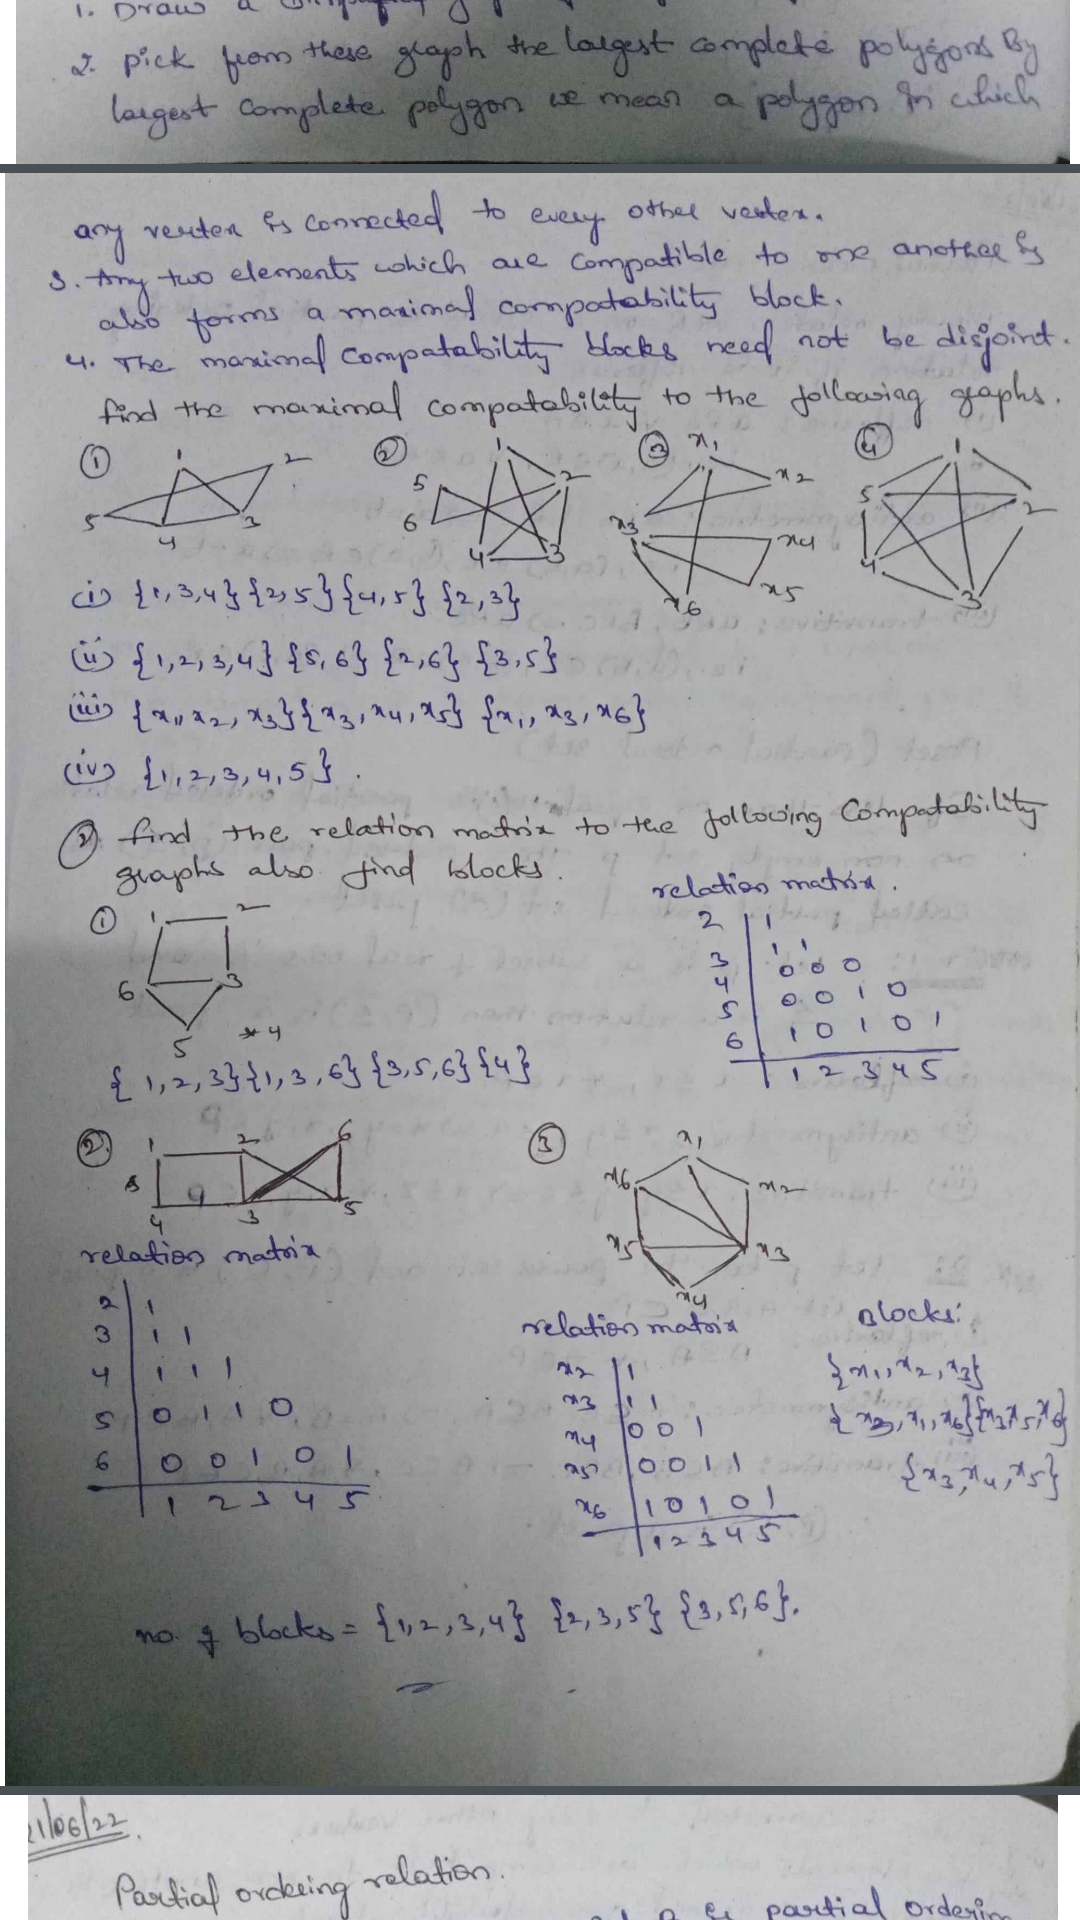 1. Draw a
2. pick from these graph the largest complete polygons By
largest complete polygon we mean a polygon in which
any vertex is connected to every other vertex.
3. Any two elements which are compatible to one another is
also forms a maximal compatability block.
4. The maximal compatability blocks need not be disjoint.
find the maximal compatability to the following graphs.
① 1 2 3 4 5
② 1 2 3 4 5 6
③ x1 x2 x3 x4 x5 x6
④ 1 2 3 4 5
(i) {1,3,4} {2,5} {4,5} {2,3}
(ii) {1,2,3,4} {5,6} {2,6} {3,5}
(iii) {x1, x2, x3} {x3, x4, x5} {x1, x3, x6}
(iv) {1,2,3,4,5}.
② find the relation matrix to the following Compatability
graphs also find blocks.
① 1 2 3 6 5 * 4
relation matrix.
2 | 1
3 | 1 1
4 | 0 0 0
5 | 0 0 1 0
6 | 1 0 1 0 1
1 2 3 4 5
{1,2,3} {1,3,6} {3,5,6} {4}
② 1 2 6 4 3 5
relation matrix
2 | 1
3 | 1 1
4 | 1 1 1
5 | 0 1 1 0
6 | 0 0 1 0 1
1 2 3 4 5
③ x1 x2 x3 x4 x5 x6
relation matrix
x2 | 1
x3 | 1 1
x4 | 0 0 1
x5 | 0 0 1 1
x6 | 1 0 1 0 1
1 2 3 4 5
Blocks:
{x1, x2, x3}
{x3, x1, x6} {x3, x5, x6}
{x3, x4, x5}
no. of blocks = {1,2,3,4} {2,3,5} {3,5,6}.
21/06/22.
Partial ordering relation.
partial ordering